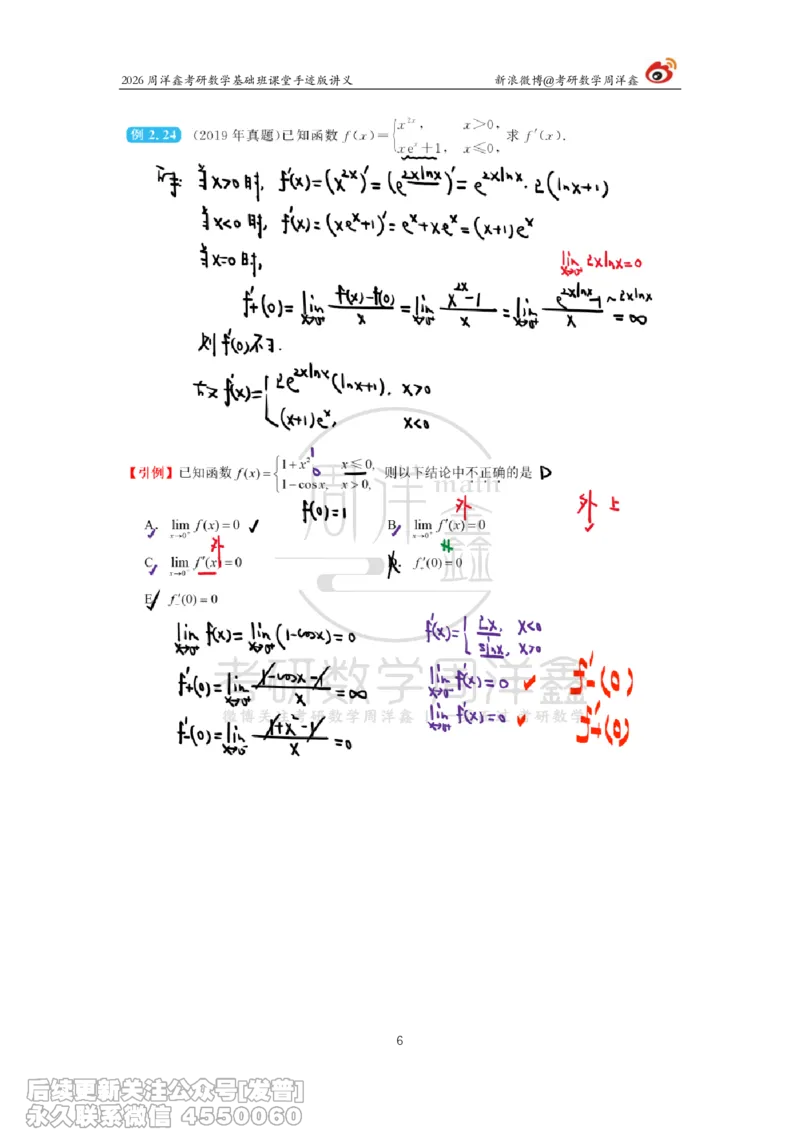 2026 周洋鑫考研数学基础班课堂手迹版讲义 新浪微博@考研数学周洋鑫
例 2.24 (2019 年真题)已知函数 f(x)={x^{2x}, x>0, xe^x+1, x≤0, 求 f′(x).
当x>0时, f′(x)=(x^{2x})′=(e^{2xlnx})′=e^{2xlnx}·2(lnx+1)
当x<0时, f′(x)=(xe^x+1)′=e^x+xe^x=(x+1)e^x
当x=0时,
lim_{x→0+} 2xlnx=0
f′+(0)=lim_{x→0+} (f(x)-f(0))/x=lim_{x→0+} (x^{2x}-1)/x=lim_{x→0+} (e^{2xlnx}-1 ~2xlnx)/x=∞
则f′(0)不∃.
故 f′(x)={2e^{2xlnx}(lnx+1), x>0
(x+1)e^x, x<0
【引例】已知函数 f(x)={1+x^2, x≤0, 1-cosx, x>0, 则以下结论中不正确的是 D
1
0
f(0)=1
外
外 上
A. lim_{x→0+} f(x)=0 ✓
B. lim_{x→0+} f′(x)=0
外
C. lim_{x→0-} f′(x)=0
D. f′+(0)=0
E. f′-(0)=0
lim_{x→0+} f(x)=lim_{x→0+}(1-cosx)=0
f′(x)={2x, x<0
sinx, x>0
f′+(0)=lim_{x→0+} (1-cosx-1)/x=∞
lim_{x→0-} f′(x)=0 ✓ f′-(0)
f′-(0)=lim_{x→0-} (1+x^2-1)/x=0
lim_{x→0+} f′(x)=0 ✓ f′+(0)
周洋鑫
math
考研数学周洋鑫
微博关注考研数学周洋鑫
考研数学
6
后续更新关注公众号[发普]
永久联系微信 4550060